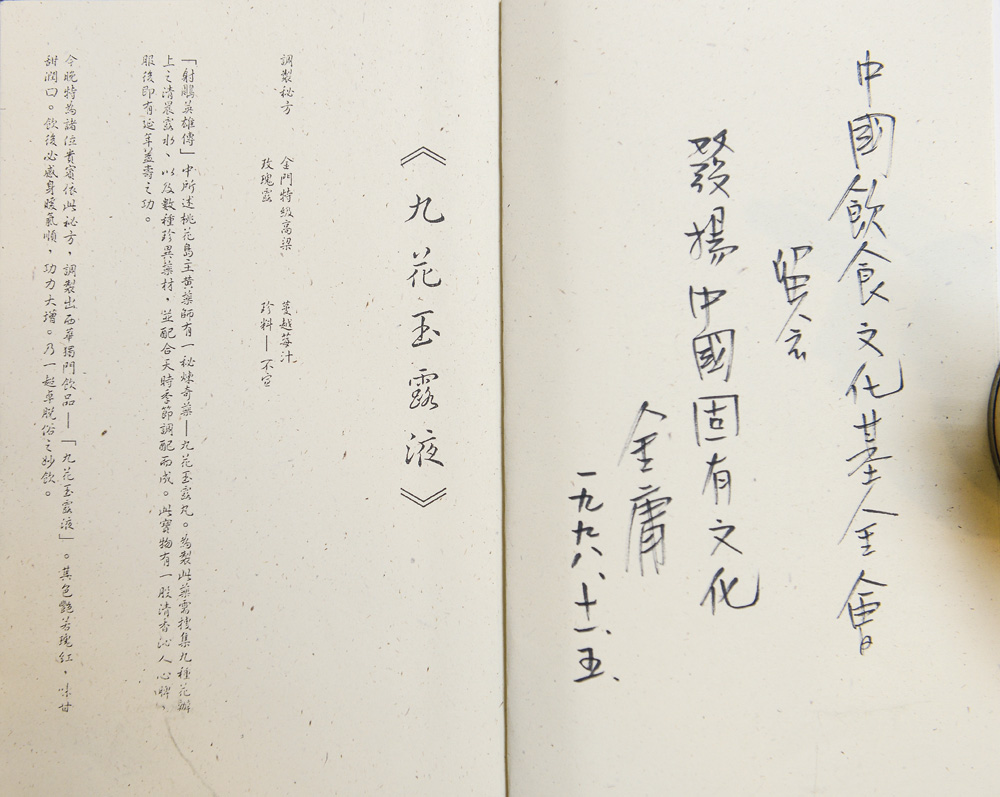 中國飲食文化基金會
留念
發揚中國固有文化
金庸
一九九八、十一、五、
《九花玉露液》
調製秘方
金門特級高梁、
蔓越莓汁
玫瑰露
珍料—不宣
「射鵰英雄傳」中所述桃花島主黄藥師有一秘煉奇藥—九花玉露丸。為製此藥需搜集九種花瓣
上之清晨露水、以及數種珍異藥材，並配合天時季節調配而成。此寶物有一股清香沁人心脾，
服後即有延年益壽之功。
今晚特為諸位貴賓依此秘方，調製出西華獨門飲品—「九花玉露液」。其色豔若瑰紅，味甘
甜潤口。飲後必感身暖氣順，功力大增。乃一超卓脫俗之妙飲。